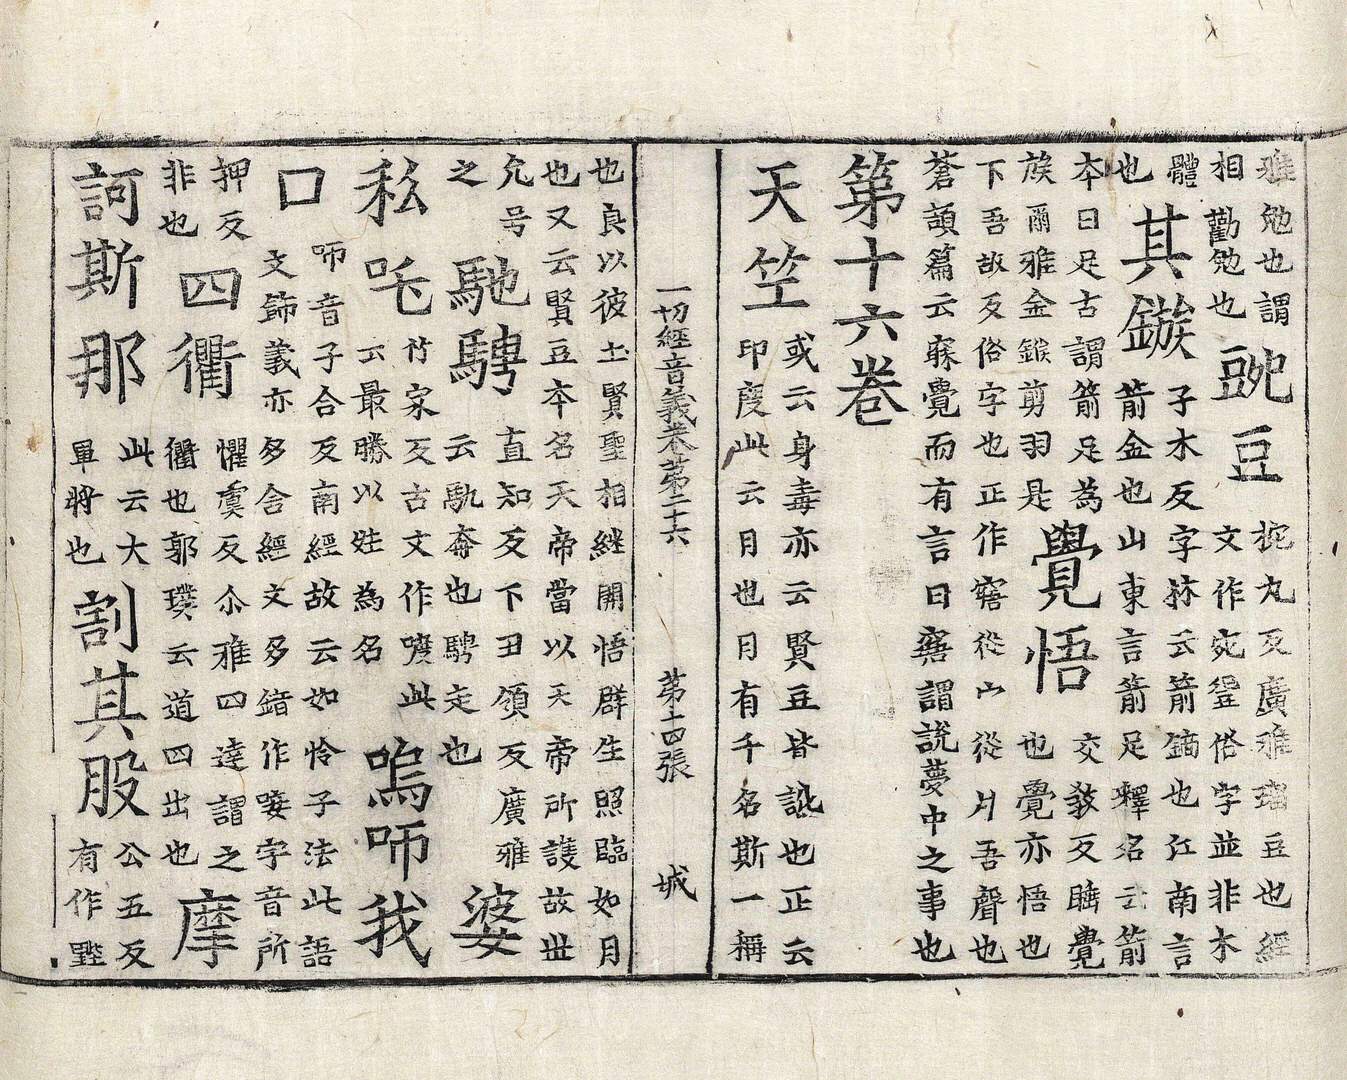 雅勉也謂
相勸勉也
豌豆
捥丸反廣雅𧯡豆也經
文作宛豋俗字並非木
體
也
其鏃
子木反字林云箭鏑也江南言
箭金也山東言箭足釋名云箭
本曰足古謂箭足為
族爾雅金鏃剪羽是
覺悟
交教反睡覺
也覺亦悟也
下吾故反俗字也正作寤從宀從爿吾聲也
蒼頡篇云寐覺而有言曰寤謂說夢中之事也
第十六卷
天竺
或云身毒亦云賢豆皆訛也正云
印度此云月也月有千名斯一稱
一切經音義卷第二十六 第十四張 城
也良以彼土賢聖相継開悟群生照臨如月
也又云賢豆本名天帝當以天帝所護故世
允号
之
馳騁
直知反下丑領反廣雅
云馳奔也騁走也
婆
私吒
竹家反古文作此
云最勝以姓為名
嗚咂我
口
咂音子合反南經故云如怜子法此語
文飾義亦多含經文多錯作唼字音所
押反
非也
四衢
懼虞反尒雅四達謂之
衢也郭璞云道四出也
摩
訶斯那
此云大
軍將也
割其股
公五反
有作